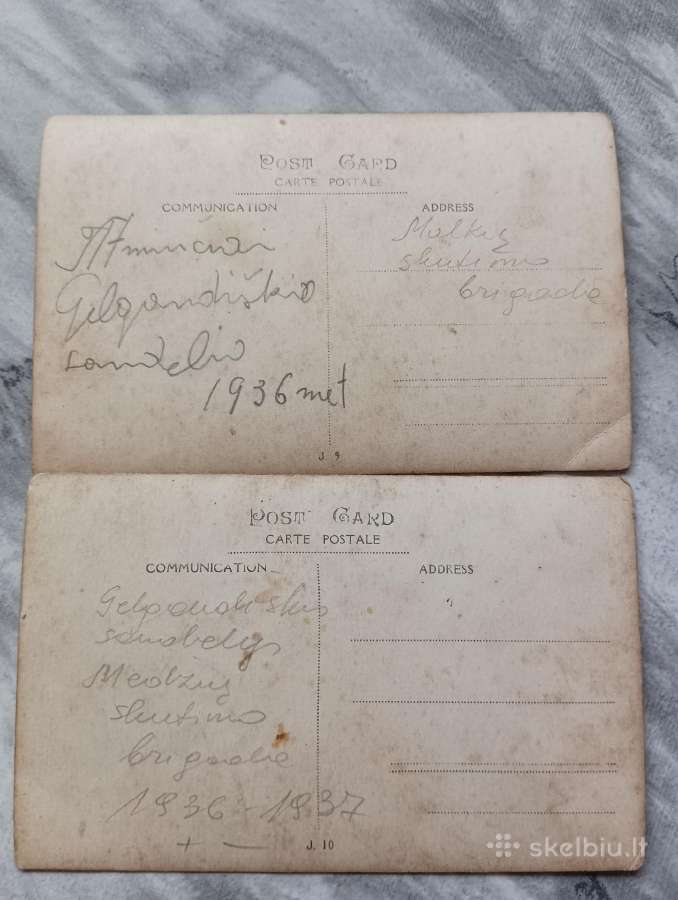 POST CARD
CARTE POSTALE
COMMUNICATION
ADDRESS
Atminčiai
Gelgaudiškio
sandelio
1936 met
Malkų
skutimo
brigada
J. 9
POST CARD
CARTE POSTALE
COMMUNICATION
ADDRESS
Gelgaudiškio
sandelys
Medžių
skutimo
brigada
1936-1937
+ —
J. 10
skelbiu.lt